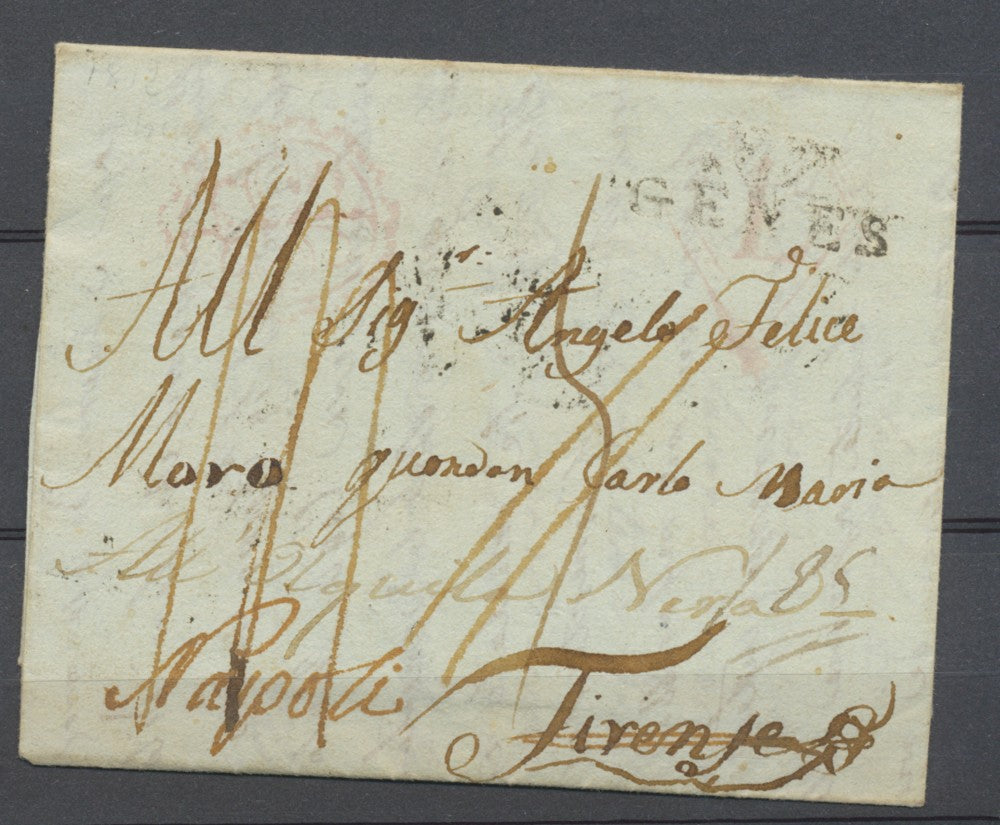 GENES
All Sigr Angelo Felice
Moro quondan Carlo Maria
All Aquila Nera 85
Napoli
Firenze